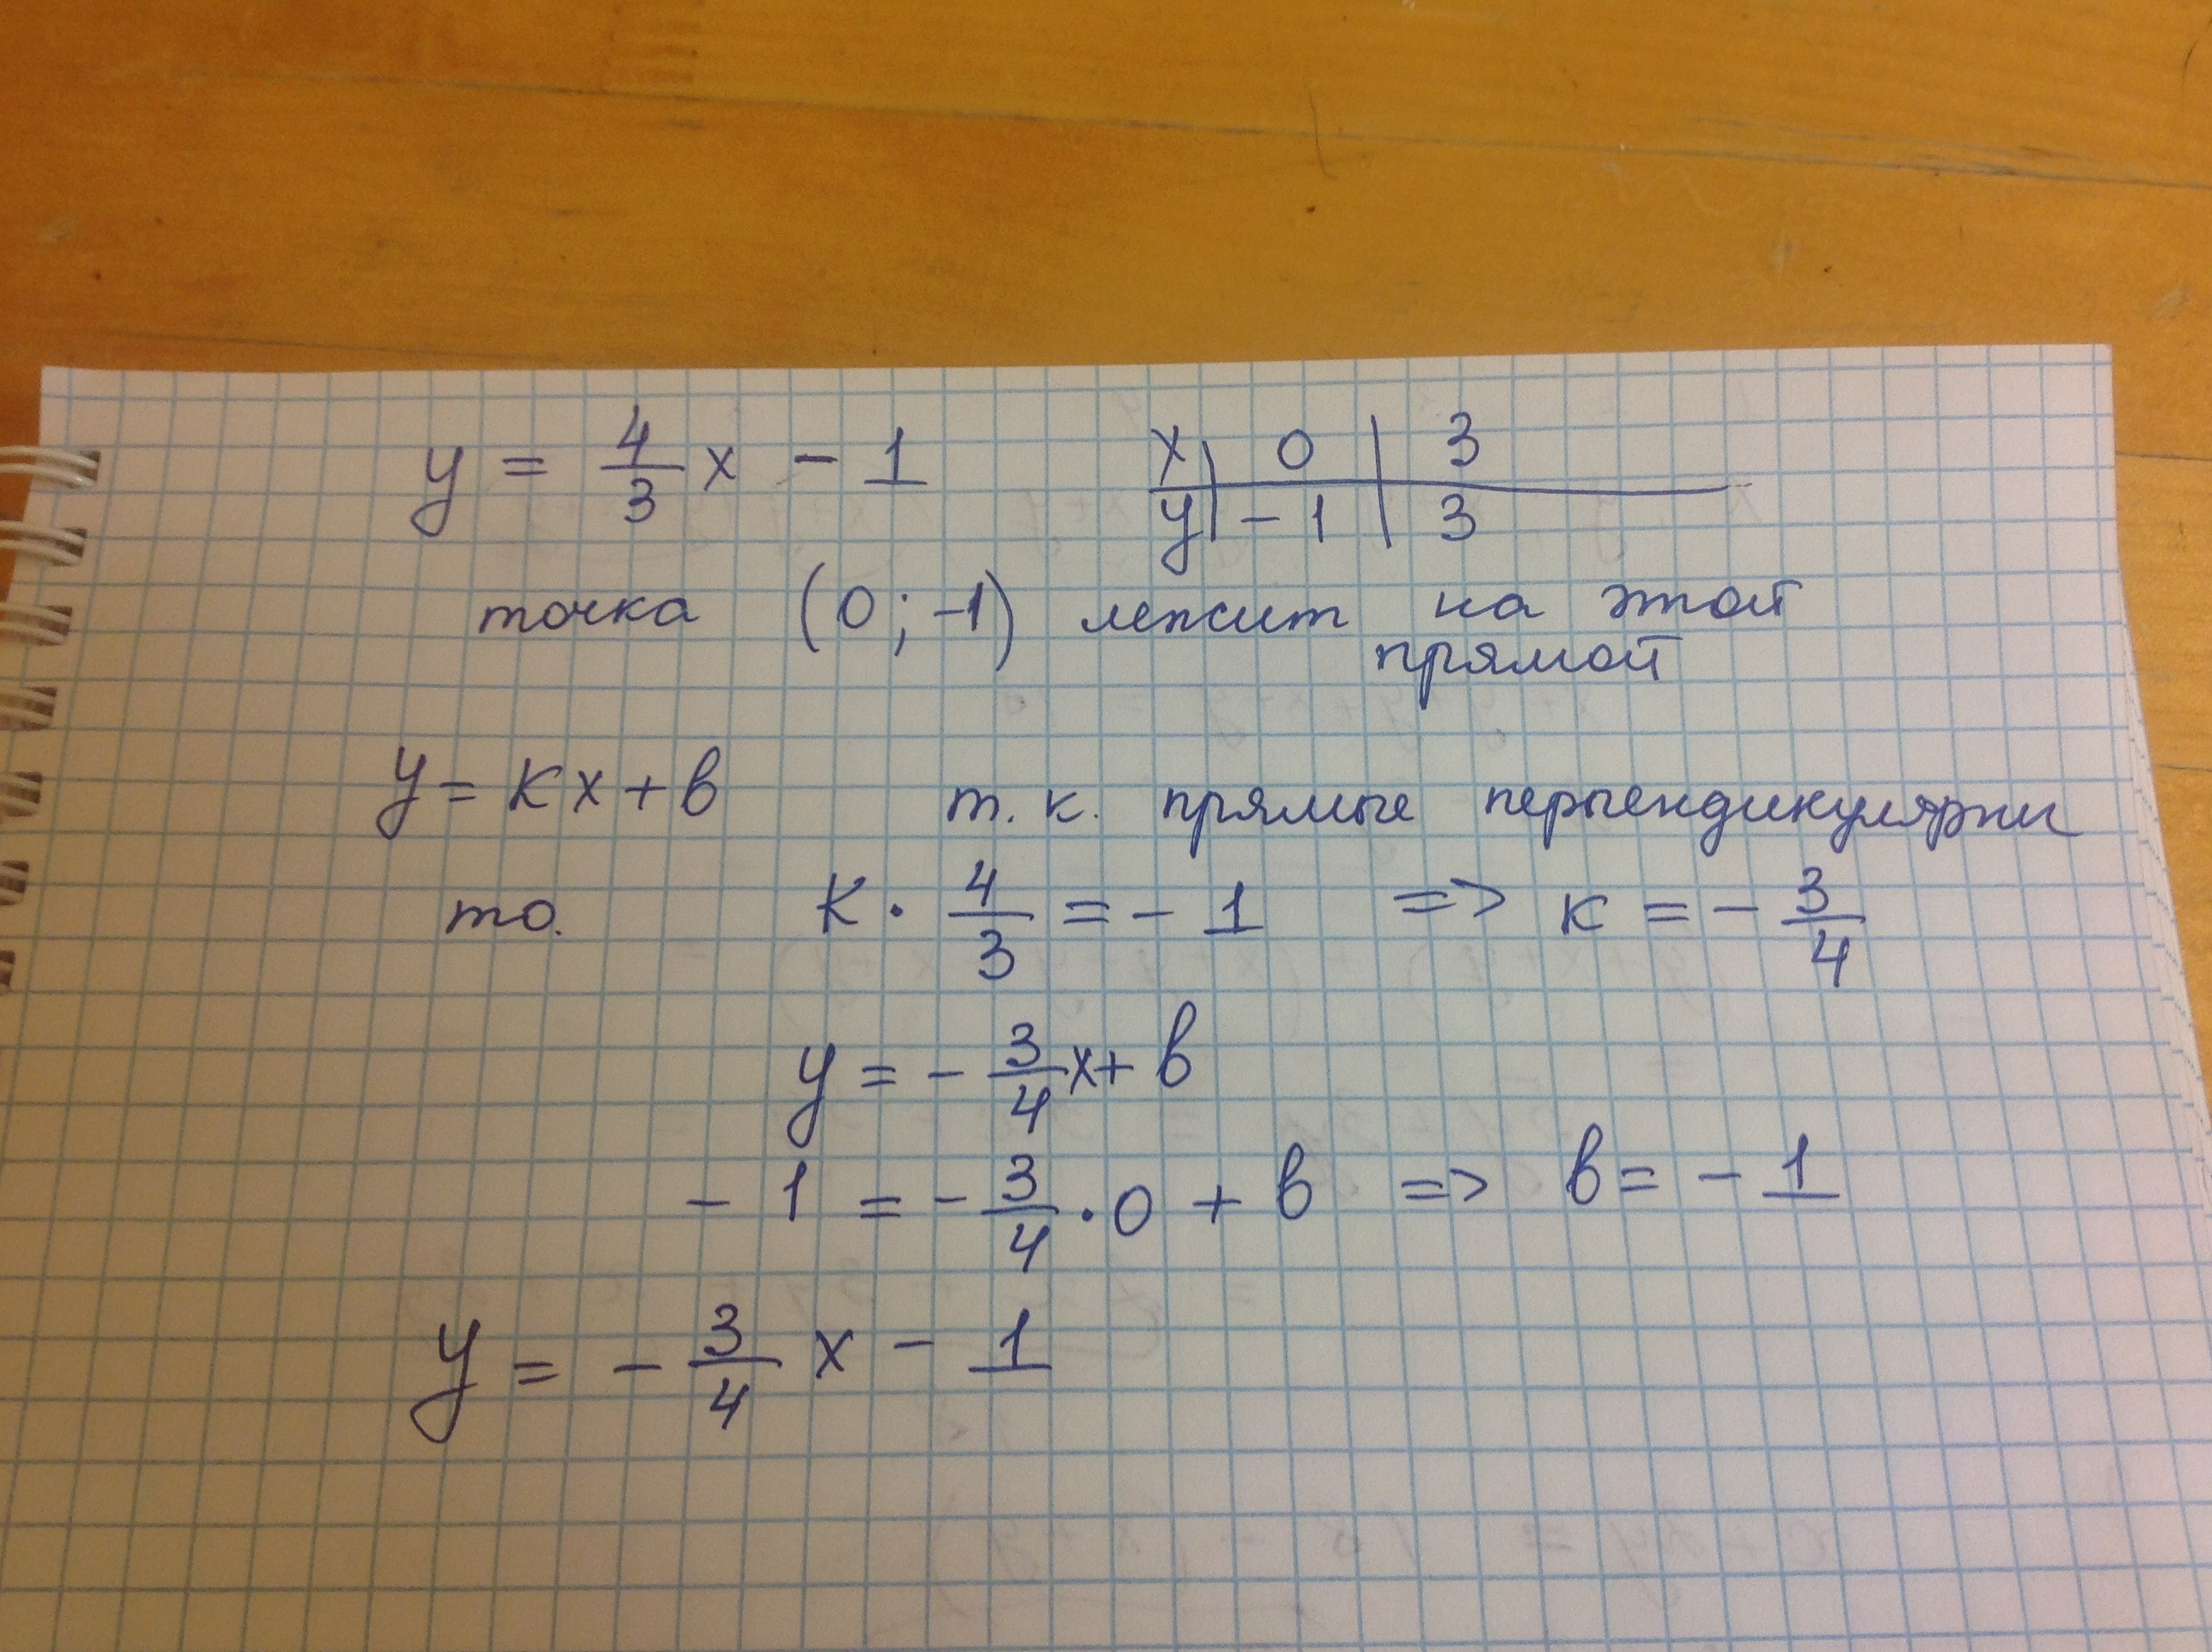 y = 4/3 x - 1
x | 0 | 3
y | -1 | 3
точка (0; -1) лежит на этой
прямой
y = кx + в
т.к. прямые перпендикулярны
то. к · 4/3 = - 1 => к = - 3/4
y = - 3/4 x + в
- 1 = - 3/4 · 0 + в => в = - 1
y = - 3/4 x - 1